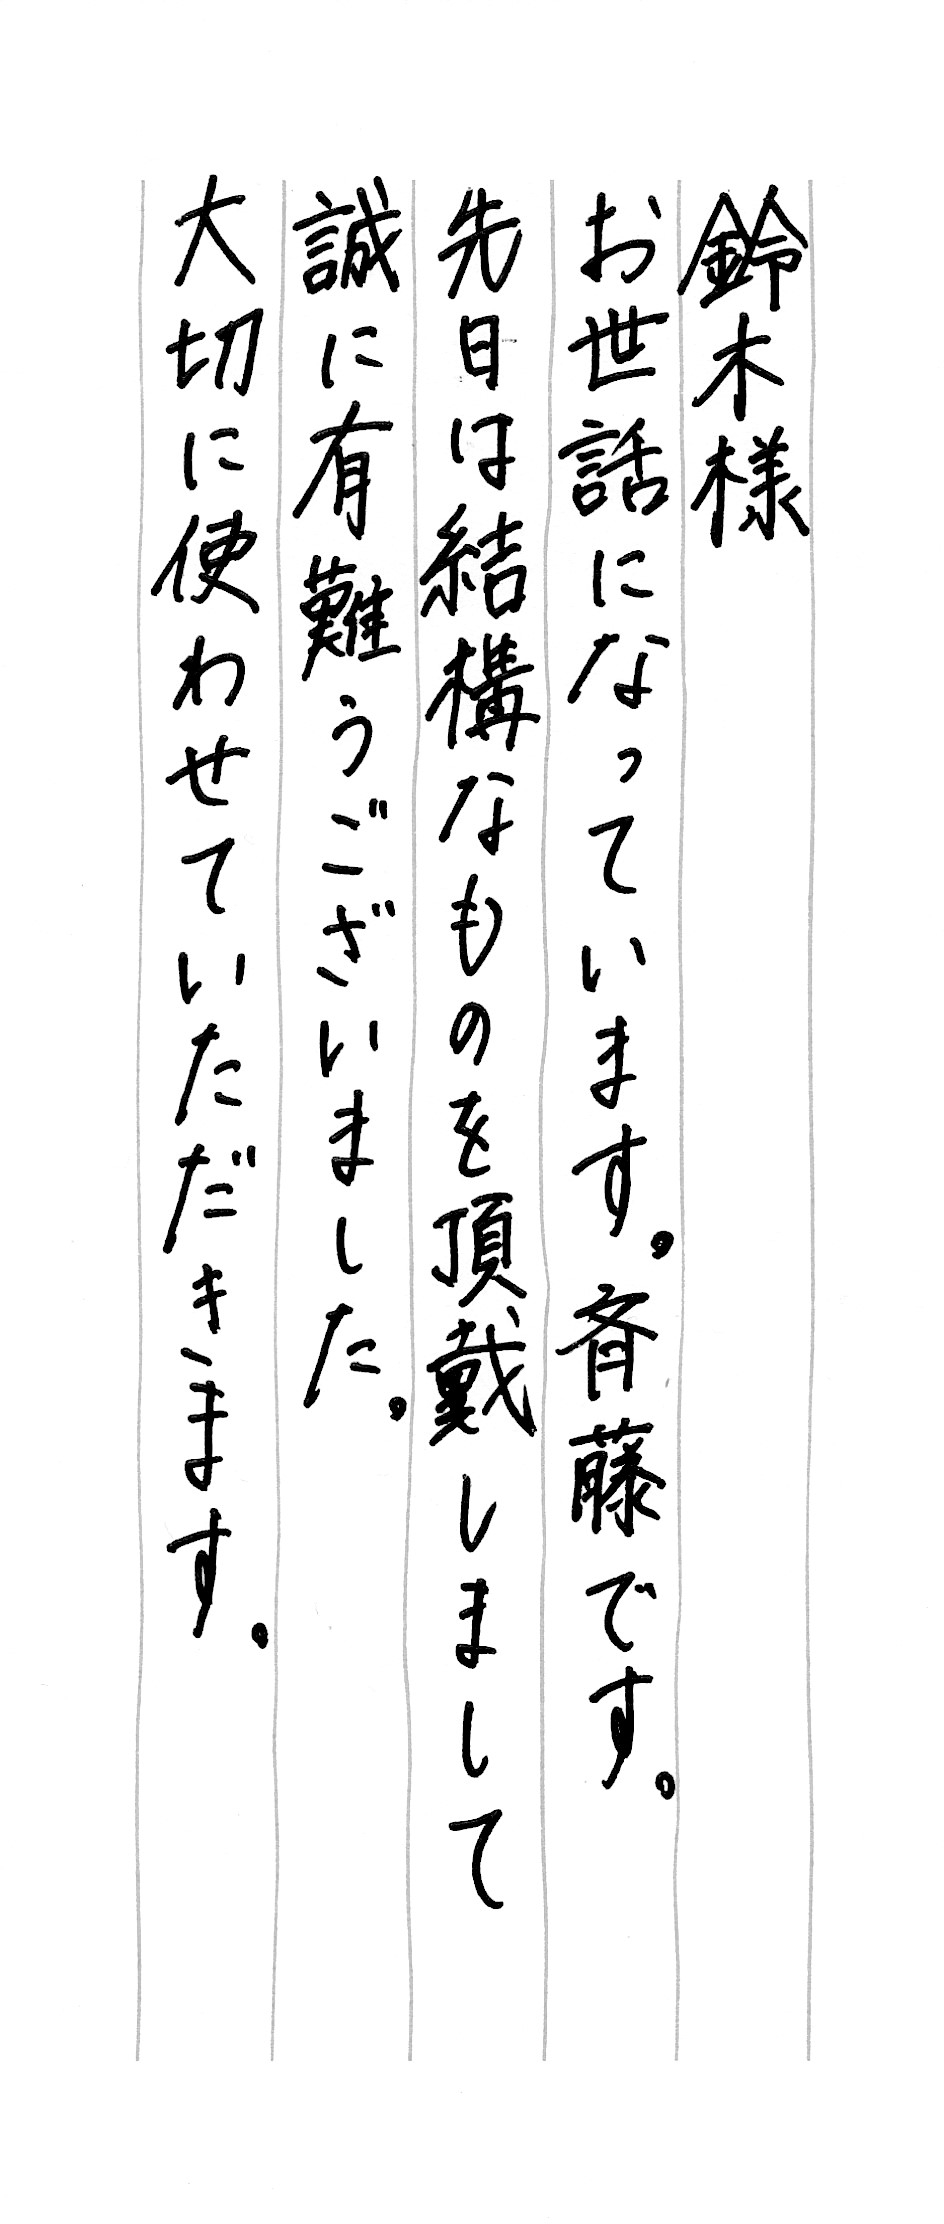 鈴木様
お世話になっています。斉藤です。
先日は結構なものを頂戴しまして
誠に有難うございました。
大切に使わせていただきます。